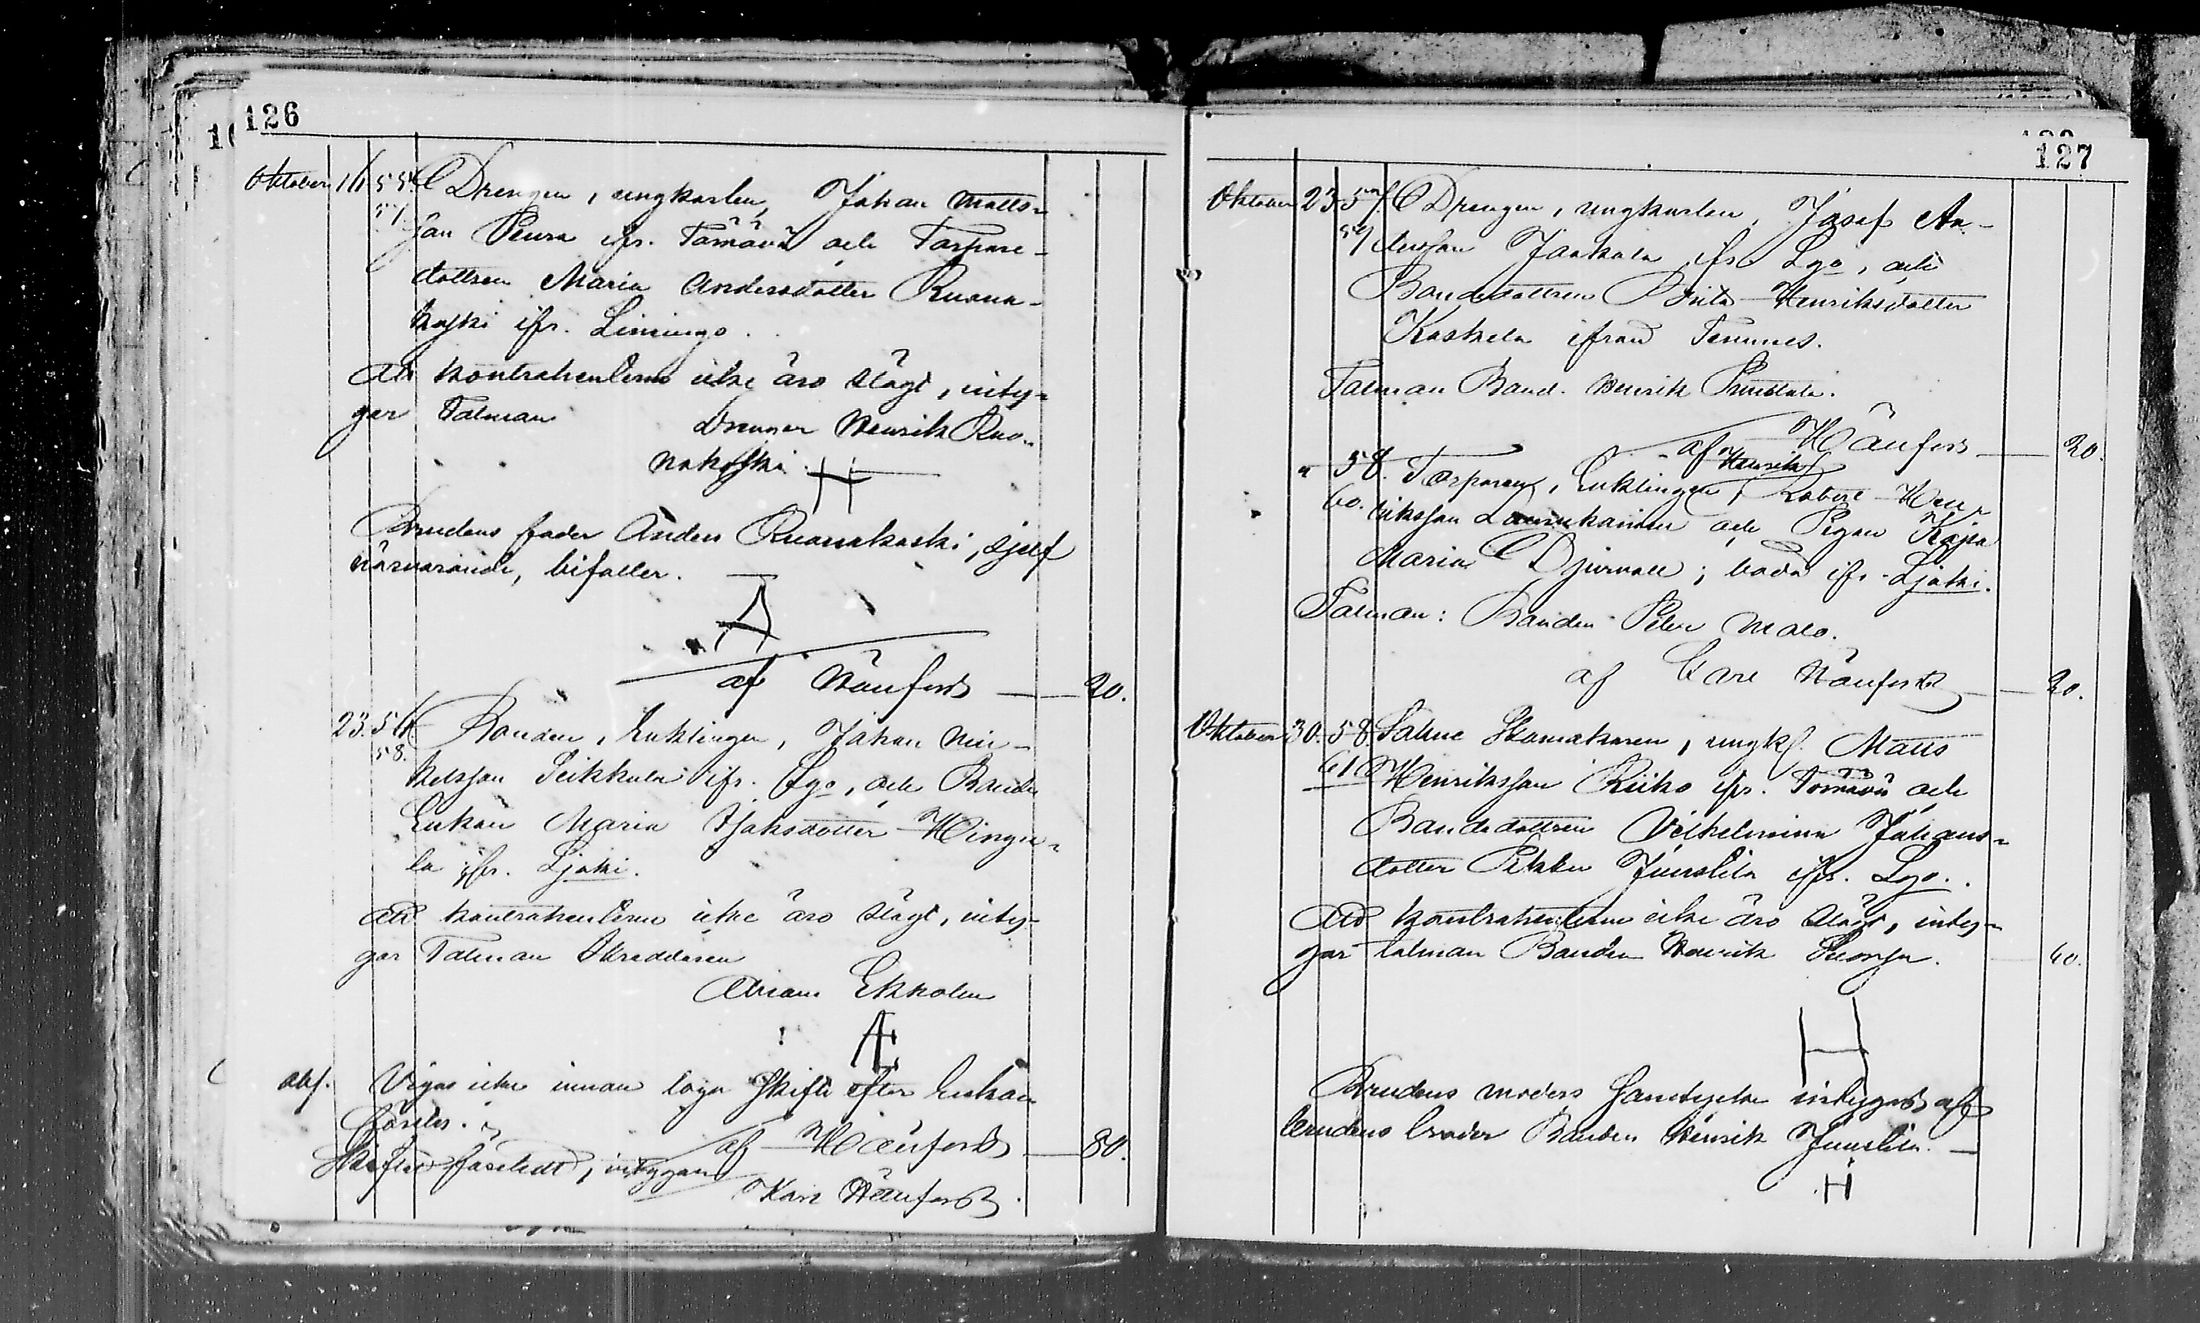 126
Oktober 16 55. Drengen, ungkarlen, Johan Matts-
57. son Peura ifr. Tömävä och Torpare-
dottren Maria Andersdotter Ruona-
koski ifr. Limingo.
Att kontrahenterne icke äro slägt, inty-
gar Talman Drengen Henrik Ruo-
nakoski.
H
Brudens fader Anders Ruonakoski, sjelf
närvarande, bifaller.
A
af Hänfors — 20.
23. 56. Bonden, Enklingen, Johan Mic-
58. kelsson Peikkula ifr. Lgo, och Bonde
Enkan Maria Isaksdotter Hingu-
la ifr. Ljoki.
Att kontrahenterne icke äro slägt, inty-
gar Talman Skreddaren
Adrian Ekholm
AE
obs. Viges icke innan laga skifte efter Enkan
företes.
af Hänfors — 80.
Skiftet företedt, intygar
Karl Hänfors.
127
Oktober 23. 57. Drengen, ungkarlen, Josef An-
59 dersson Jaakola ifr. Lgo, och
Bondedottren Brita Henriksdotter
Koskela ifrån Temmes.
Talman Bond. Henrik
af Hänfors — 20.
" 58. Torparen, Enklingen, Henrik Robert Hen-
60. riksson Laurukainen och Pigan Kajsa
Maria Djurvall; båda ifr. Ljoki.
Talman: Bonden Peter Malo.
af Carl Hänfors — 20.
Oktober 30. 58. Sockne Skomakaren, ungk. Matts
61 Henriksson Riiko ifr. Tömävä och
Bondedottren Vilhelmina Johans-
dotter Pekka Junttila ifr. Lgo.
Att kontrahenterne icke äro slägt, inty-
gar talman Bonden Henrik — 40.
H
Brudens moders samtycke intygas af
brudens broder Bonden Henrik Junttila. —
H